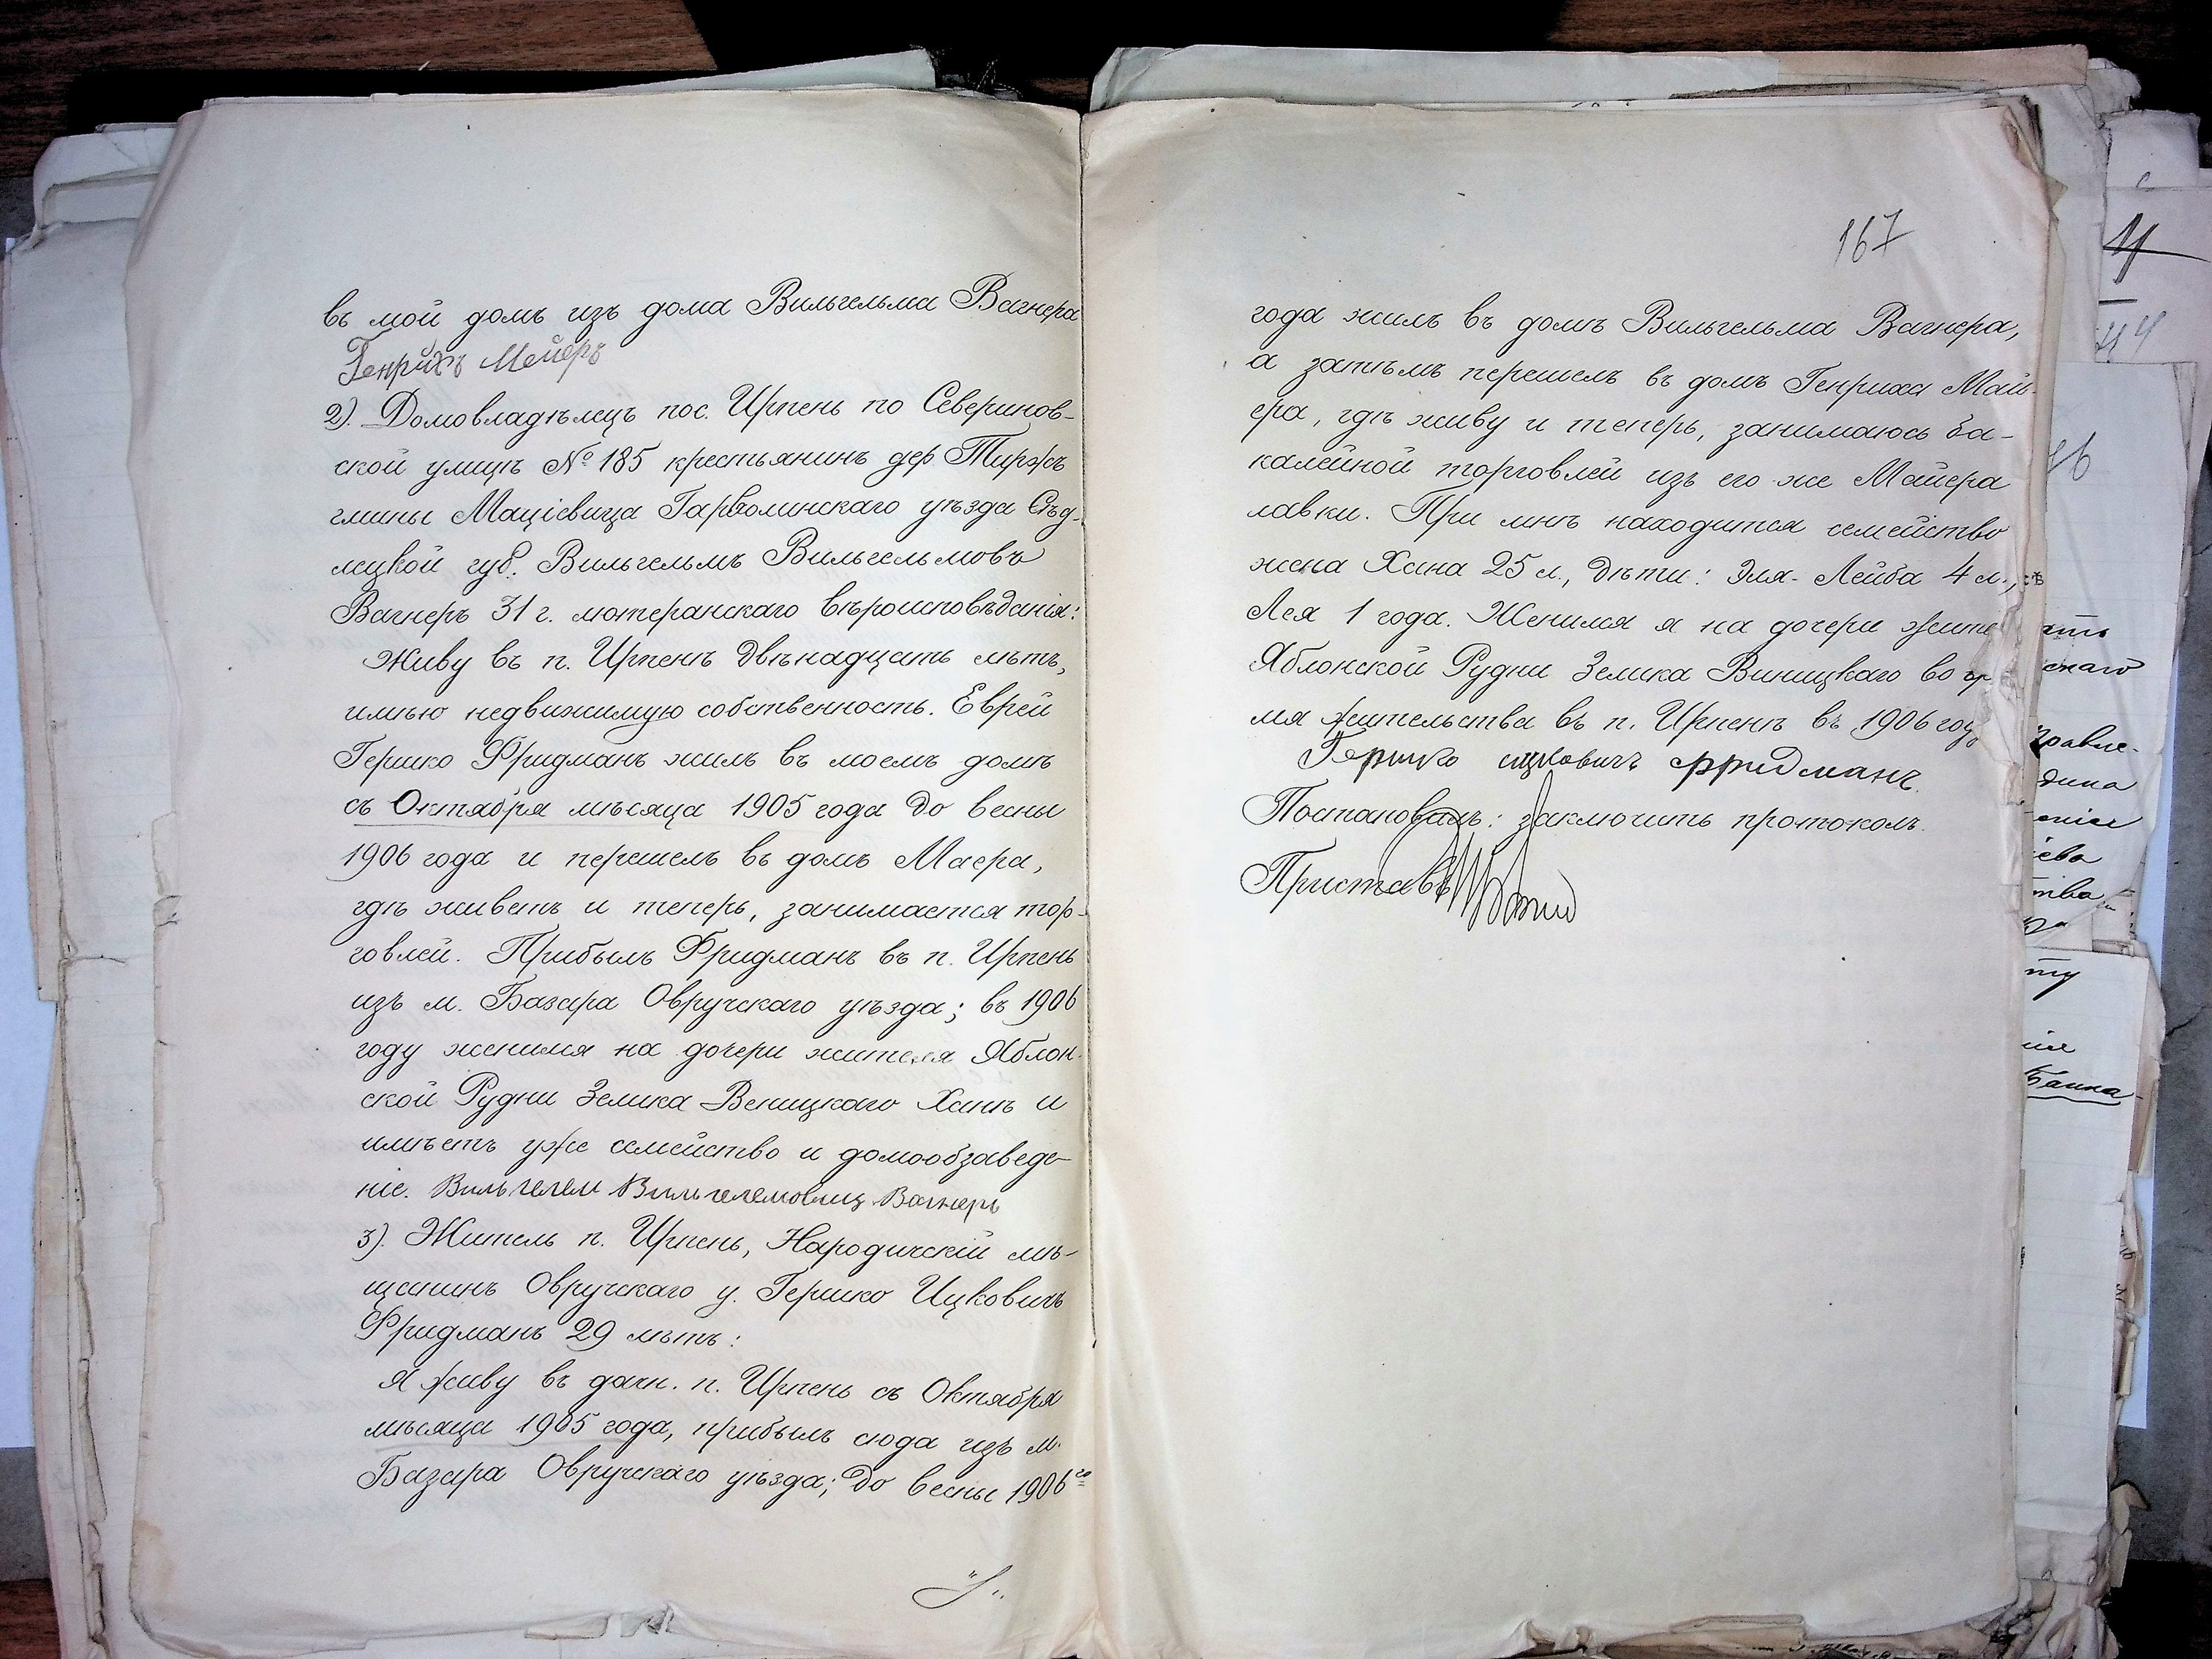 въ мой домъ изъ дома Вильгельма Вагнера
Генрихъ Мейеръ
2). Домовладѣлецъ пос. Ирпень по Севериновской
ской улицѣ № 185 крестьянинъ дер
гмины Мацѣевица Гарволинскаго уѣзда Сѣд-
лецкой губ. Вильгельмъ Вильгельмовъ
Вагнеръ 31 г. лютеранскаго вѣроисповѣданія:
Живу въ п. Ирпенѣ двѣнадцать лѣтъ,
имѣю недвижимую собственность. Еврей
Гершко Фридманъ жилъ въ моемъ домѣ
съ Октября мѣсяца 1905 года до весны
1906 года и перешелъ въ домъ Маера,
гдѣ живетъ и теперь, занимается тор-
говлей. Прибылъ Фридманъ въ п. Ирпень
изъ м. Базара Овручскаго уѣзда; въ 1906
году женился на дочери жителя Яблон-
ской Рудни Зелика Веницкаго Ханѣ и
имѣетъ уже семейство и домообзаведе-
ніе. Вильгелем Вильгелемовиц Вагнеръ
3). Житель п. Ирпень, Народичскій мѣ-
щанинъ Овручскаго у. Гершко Ицковичъ
Фридманъ 29 лѣтъ:
Я живу въ дачн. п. Ирпень съ Октября
мѣсяца 1905 года, прибылъ сюда изъ м.
Базара Овручскаго уѣзда; до весны 1906 го
167
года жилъ въ домѣ Вильгельма Вагнера,
а затѣмъ перешелъ въ домъ Генриха Май-
ера, гдѣ живу и теперь, занимаюсь ба-
калейной торговлей изъ его же Майера
лавки. При мнѣ находится семейство
жена Хана 25 л., дѣти: Эля-Лейба 4 л.,
Лея 1 года. Женился я на дочери жите
Яблонской Рудни Зелика Виницкаго во вр
мя жительства въ п. Ирпенѣ въ 1906 году
Гершко ицковичъ фридманъ.
Постановилъ: заключить протоколъ.
Приставъ